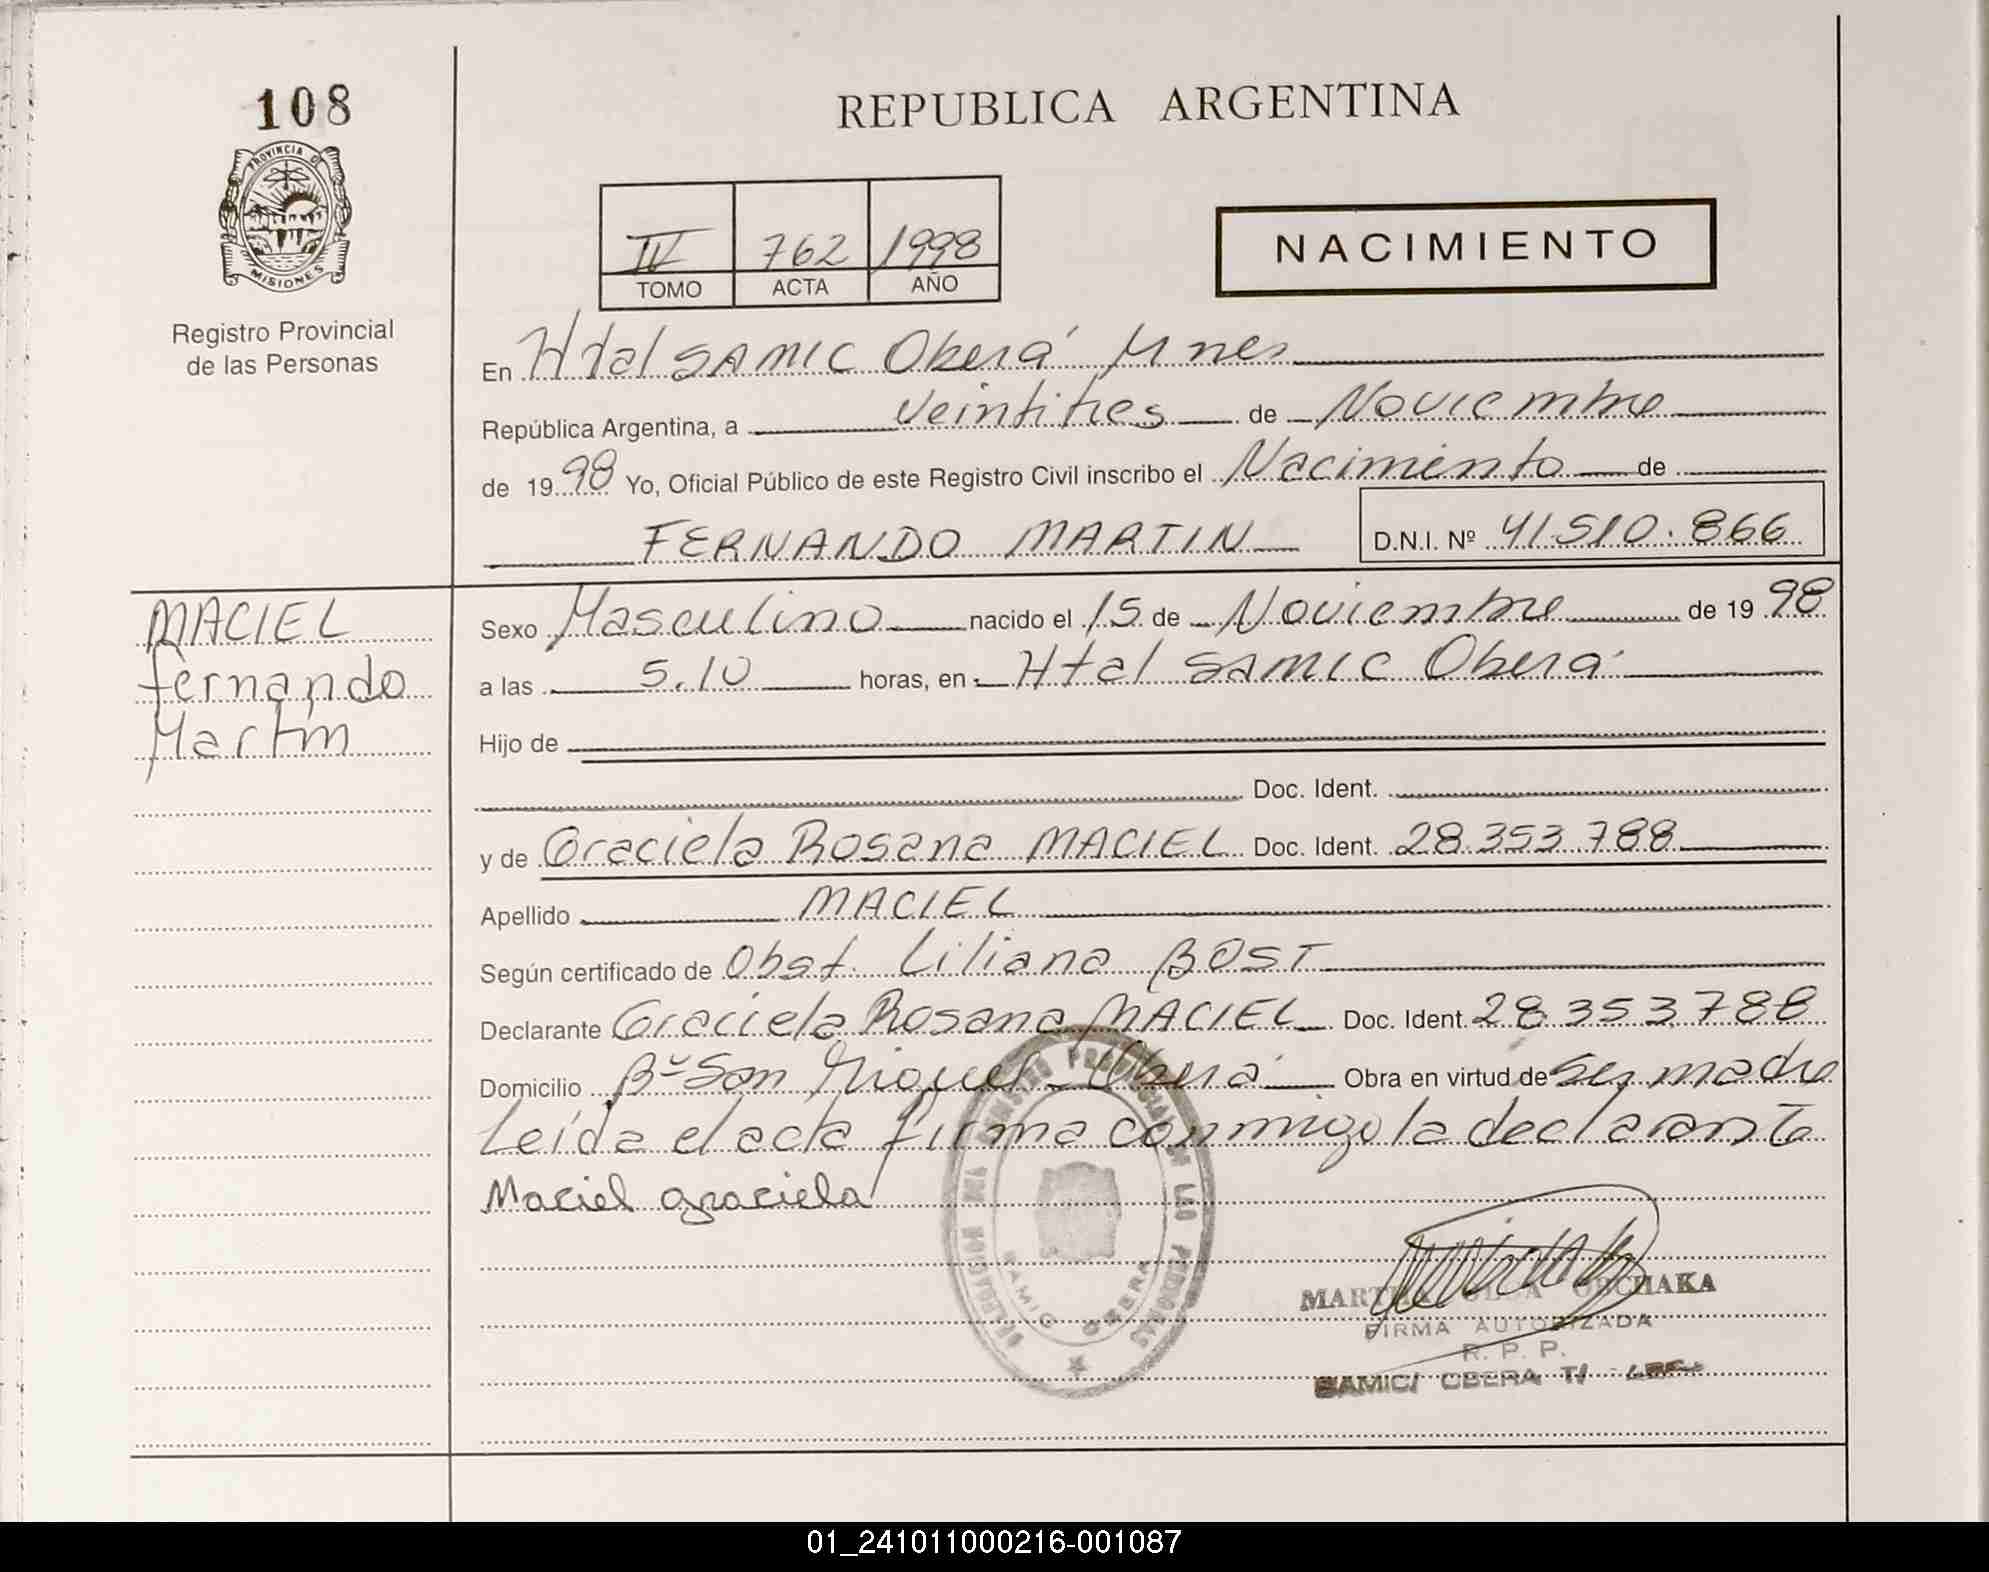 108
PROVINCIA D
MISIONES
Registro Provincial
de las Personas
REPUBLICA ARGENTINA
IV 762 1998
TOMO ACTA AÑO
NACIMIENTO
En Htal SAMIC Oberá Mnes
República Argentina, a veintitres de Noviembre
de 1998 Yo, Oficial Público de este Registro Civil inscribo el Nacimiento de
FERNANDO MARTIN D.N.I. Nº 41.510.866
MACIEL
Fernando
Martín
Sexo Masculino nacido el 15 de Noviembre de 1998
a las 5.10 horas, en Htal SAMIC Oberá
Hijo de
Doc. Ident.
y de Graciela Rosana MACIEL Doc. Ident. 28.353.788
Apellido MACIEL
Según certificado de Obst. Liliana BOST
Declarante Graciela Rosana MACIEL Doc. Ident. 28.353.788
Domicilio Bº San Miguel - Oberá Obra en virtud de ser madre
Leída el acta firma conmigo la declarante
Maciel graciela
REGISTRO PROVINCIAL DE LAS PERSONAS
DELEGACION
SAMIC OBERA
ORCHAKA
FIRMA AUTORIZADA
R. P. P.
SAMIC/ OBERA T/
01_241011000216-001087